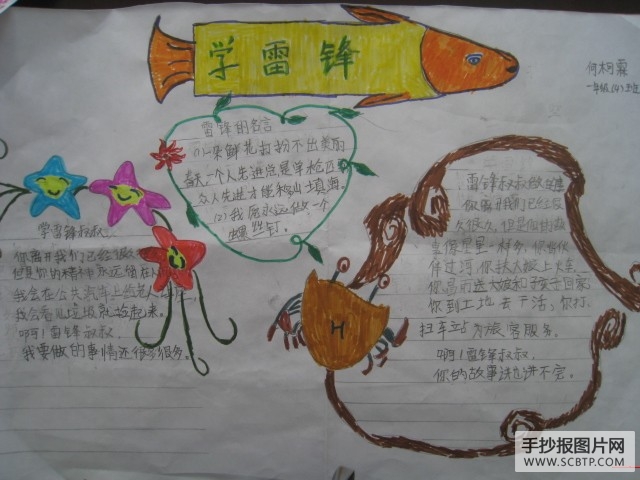 学雷锋
何柯霖
一年级(4)班
雷锋的名言
(1)一朵鲜花打扮不出美丽的
春天,一个人先进总是单枪匹马,
众人先进才能移山填海。
(2)我愿永远做一个
螺丝钉。
学雷锋叔叔
你离开我们已经很久
但是你的精神永远留在人
我会在公共汽车上给老人让座
我会看见垃圾就捡起来。
啊!雷锋叔叔,
我要做的事情还很多很多。
雷锋叔叔
你离开我们已经
久很久,但是你的故
事像星星一样多,你背伙
伴过河,你扶大娘上火车。
你冒雨送大娘和孩子回家
你到工地去干活,你打
扫车站为旅客服务。
啊!雷锋叔叔,
你的故事讲也讲不完。
H
手抄报图片网
WWW.SCBTP.COM